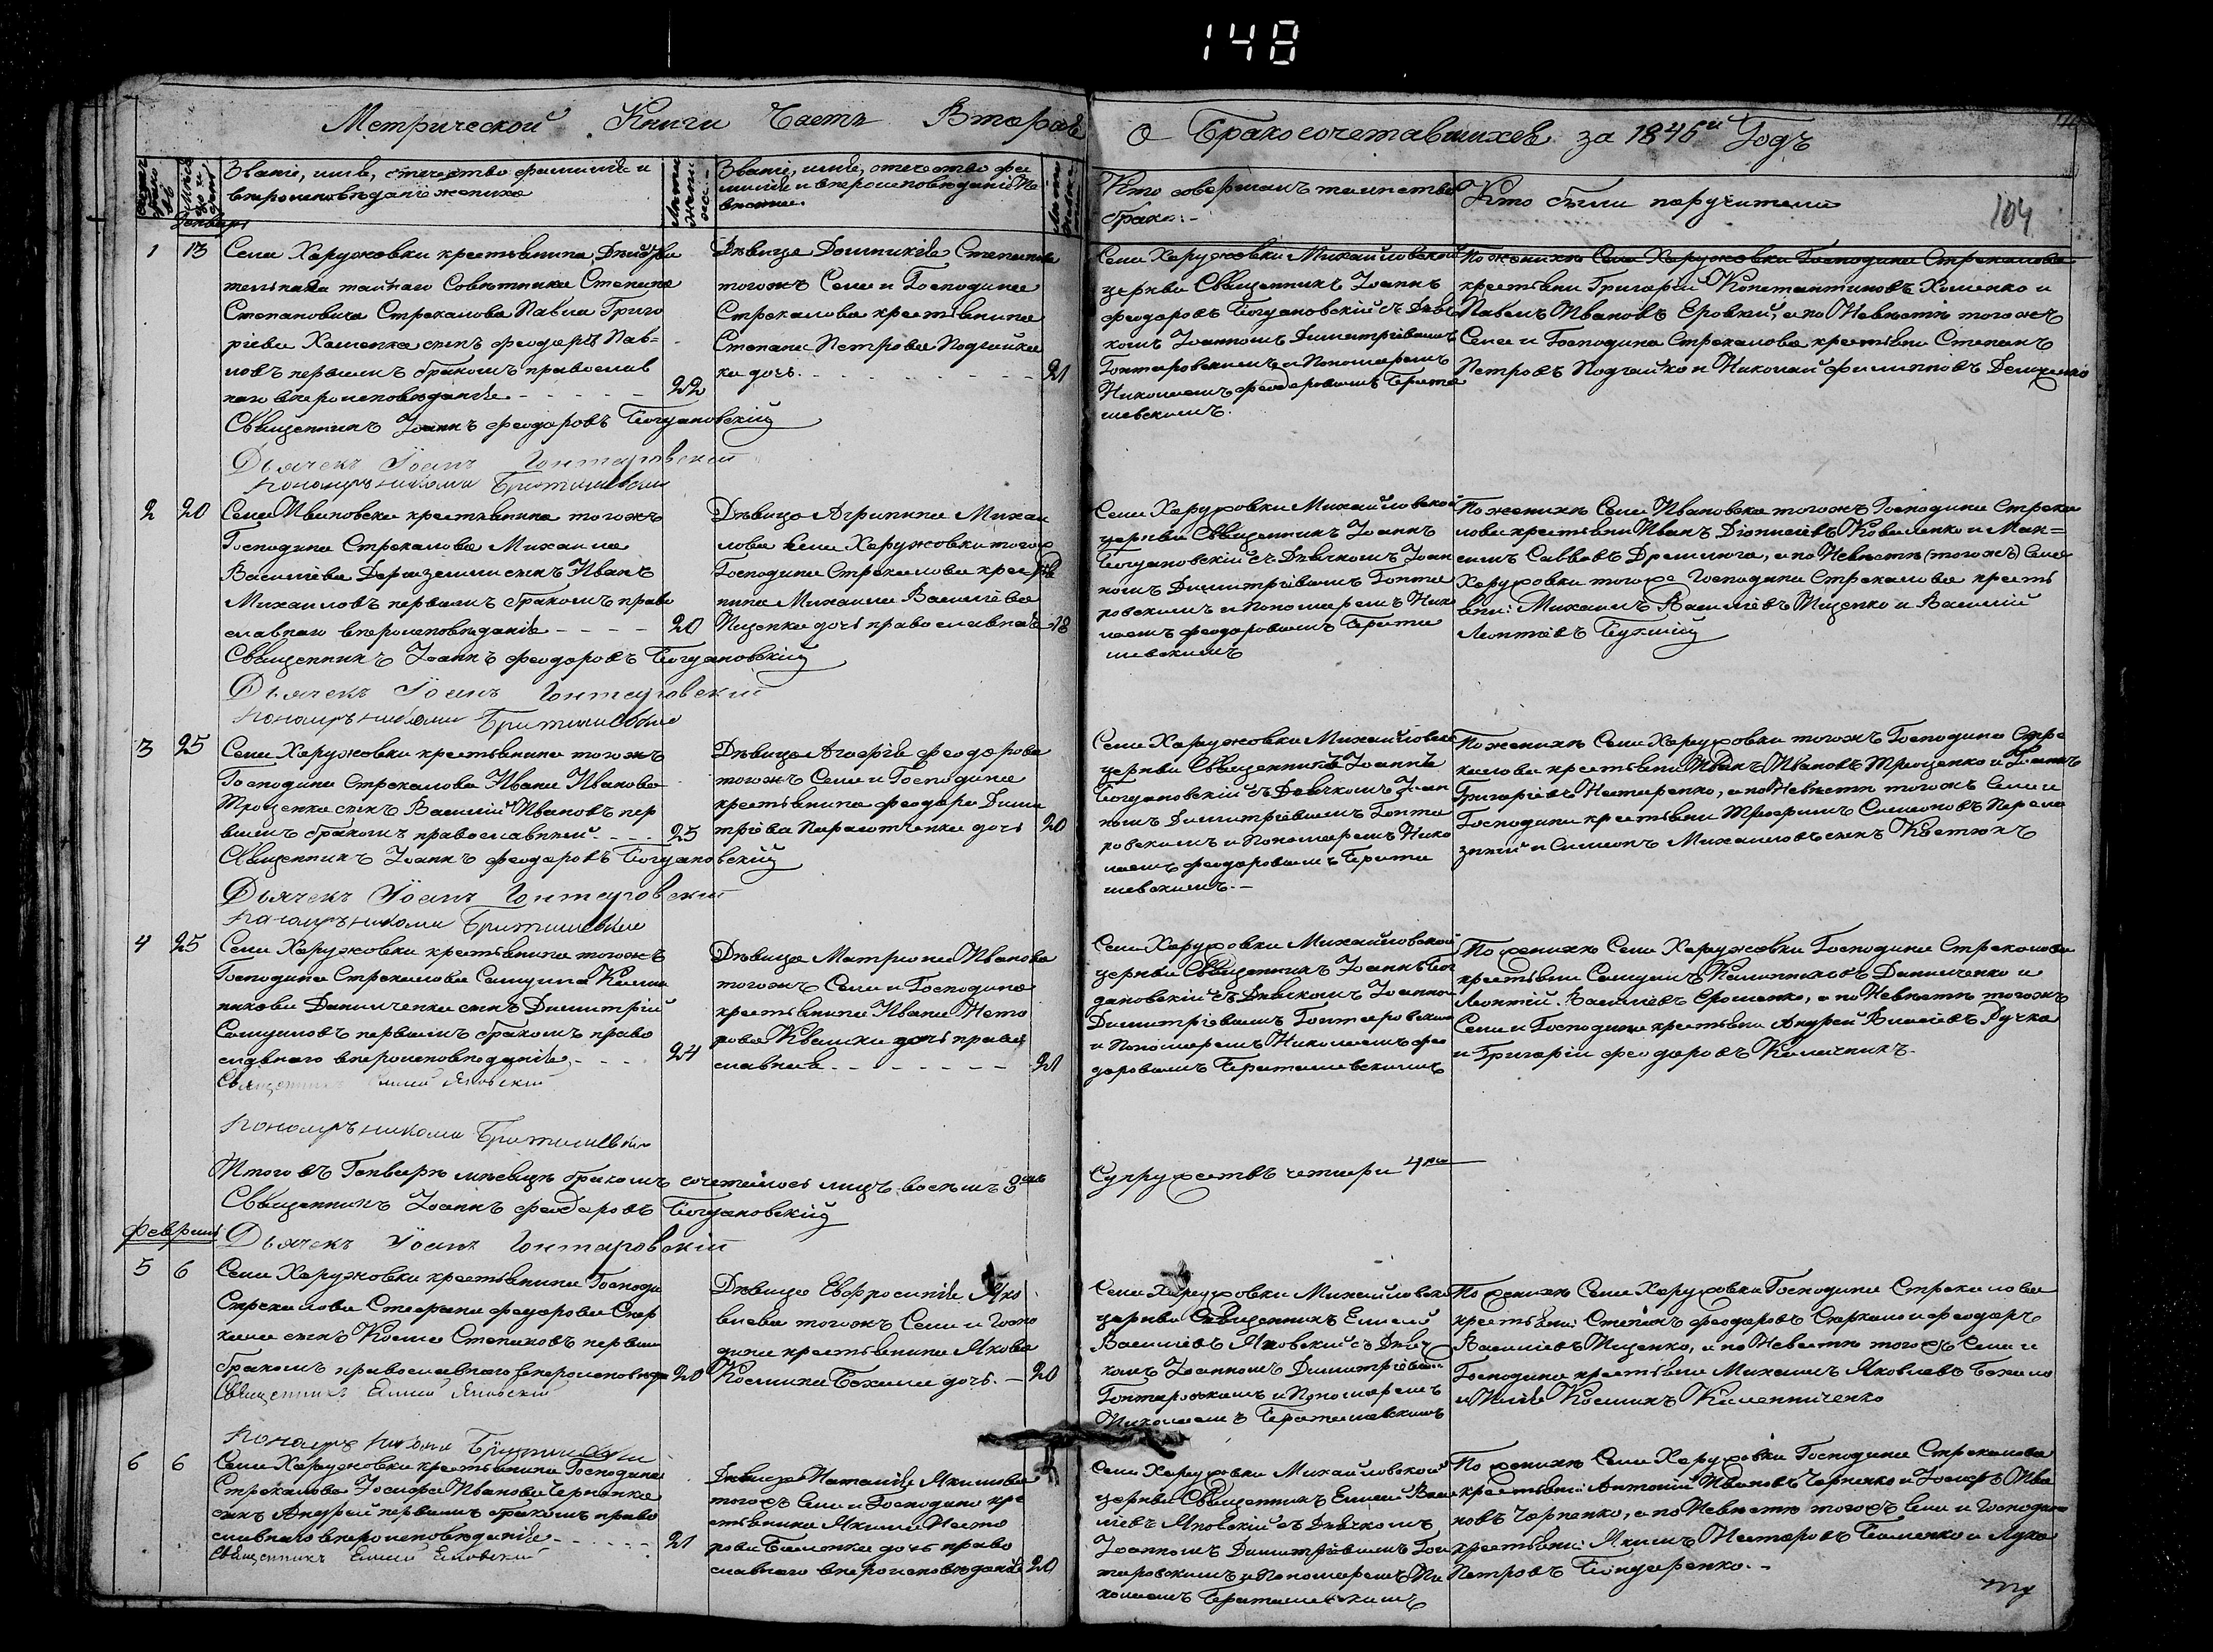 148
Метрической Книги Часть Вторая
О Бракосочетавшихся за 1846й Годъ
104
Званіе, имя, отечество фамилія и
вѣроисповѣданіе жениха
Званіе, имя, отечество фа
милія и вѣроисповѣданіе Не
вѣсты.
Кто совершалъ таинство
брака.
Кто были поручители
1 13 Села Харужовки крестьянина Дѣйстви
тельнаго тайнаго Совѣтника Степана
Степановича Стрекалова Павла Григо
ріева Хоменка сынъ Феодоръ Пав=
ловъ первымъ бракомъ православ
наго вѣроисповѣданія 22
Священникъ Іоаннъ Феодоровъ Богдановскій
Дьячекъ Іоанъ Гонтаровскій
Дѣвица Домникія Степанова
тогожъ Села и Господина
Стрекалова крестьянина
Степана Петрова Подгайка
ка дочь. 21
Села Харужовки Михайловской
церкви Священникъ Іоаннъ
Феодоровъ Богдановскій съ Дьяч
комъ Іоанномъ Димитріевымъ
Гонтаровскимъ и Пономаремъ
Николаемъ Феодоровымъ
По женихѣ Села Харужовки Господина Стрекалова
крестьяни Григорій Константиновъ Хоменко и
Павелъ Ивановъ Еровкій, а по Невѣстѣ тогожъ
Села и Господина Стрекалова крестьяни Степанъ
Петровъ Подгайко и Николай Филипповъ
2 20 Села Ивановски крестьянина тогожъ
Господина Стрекалова Михаила
Василіева сынъ Иванъ
Михаиловъ первымъ бракомъ право
славнаго вѣроисповѣданія 20
Священникъ Іоаннъ Феодоровъ Богдановскій
Дьячекъ Іоанъ Гонтаровскій
Дѣвица Агрипина Михаи
лова Села Харужовки тогож
Господина Стрекалова крестья
нина Михаила Василіева
Ищенка дочь православная 18
Села Харужовки Михайловской
церкви Священникъ Іоаннъ
Богдановскій съ Дьячкомъ Іоан
номъ Димитріевымъ Гонта
ровскимъ и Пономаремъ Нико
лаемъ Феодоровымъ
По женихѣ Села Ивановски тогожъ Господина Стрека
лова крестьяни Иванъ Діонисіевъ Коваленко и Мак=
симъ Саввовъ Дремлюга, а по Невѣстѣ (тогожъ) Села
Харужовки тогоже Господина Стрекалова кресть
яни: Михаилъ Василіевъ Ищенко и Василій
Леонтіевъ
3 25 Села Харужовки крестьянина тогожъ
Господина Стрекалова Ивана Иванова
Троценка сынъ Василій Ивановъ пер
вымъ бракомъ православный 25
Священникъ Іоаннъ Феодоровъ Богдановскій
Дьячекъ Іоанъ Гонтаровскій
Дѣвица Агафія Феодорова
тогожъ Села и Господина
крестьянина Феодора Дими
тріева дочь 20
Села Харужовки Михайловской
церкви Священникъ Іоаннъ
Богдановскій съ Дьячкомъ Іоан
номъ Димитріевымъ Гонта
ровскимъ и Пономаремъ Нико
лаемъ Феодоровымъ
По женихѣ Села Харужовки тогожъ Господина Стре
калова крестьяни Иванъ Ивановъ Троценко и Іоаннъ
Григоріевъ Нестеренко, а по Невѣстѣ тогожъ Села и
Господина крестьяни Трофимъ Симеоновъ
и Симеонъ Михаиловъ сынъ Костюкъ
4 25 Села Харужовки крестьянина тогожъ
Господина Стрекалова Самуила Калин
никова Данильченка сынъ Димитрій
Самуиловъ первымъ бракомъ право
славнаго вѣроисповѣданія 24
Дѣвица Матрона Иванова
тогожъ Села и Господина
крестьянина Ивана Несто
рова Квашки дочь право
славная 21
Села Харужовки Михайловской
церкви Священникъ Іоаннъ Бог
дановскій съ Дьячкомъ Іоанно
Димитріевымъ Гонтаровским
и Пономаремъ Николаемъ Фео
доровымъ
По женихѣ Села Харужовки Господина Стрекалова
крестьяни Самуилъ Калинниковъ Данильченко и
Леонтій Василіевъ Ерошенко, а по Невѣстѣ тогожъ
Села и Господина крестьяни Андрей Власіевъ Ручка
и Григорій Феодоровъ
Итого въ Генварѣ мѣсяцѣ бракомъ сочеталось лицъ восемь 8
Супружествъ четыри 4
Священникъ Іоаннъ Феодоровъ Богдановскій
Дьячекъ Іоанъ Гонтаровскій
Февраль
5 6 Села Харужовки крестьянина Господи
Стрекалова Стефана Феодорова Скар
сынъ Косма Степановъ первым
бракомъ православнаго вѣроисповѣда 20
Священникъ Елисей Яновскій
Дѣвица Евфросинія Яко
влева тогожъ Села и Госпо
дина крестьянина Якова
Космина дочь. 20
Села Харужовки Михайловской
церкви Священникъ Елисей
Василіевъ Яновскій съ Дьяч
комъ Іоанномъ Димитріевым
Гонтаровскимъ и Пономаремъ
Николаемъ
По женихѣ Села Харужовки Господина Стрекалова
крестьяни: Степанъ Феодоровъ и Феодоръ
Василіевъ Ищенко, а по Невѣстѣ тогожъ Села и
Господина крестьяни Михаилъ Яковлевъ
и Илія Косминъ
6 6 Села Харужовки крестьянина Господина
Стрекалова Іосифа Иванова Черненка
сынъ Андрей первымъ бракомъ право
славнаго вѣроисповѣданія 21
Священникъ Елисей Яновский
Дѣвица Наталія Якимова
тогожъ Села и Господина кре
стьянина Якима Несто
рова дочь право
славнаго вѣроисповѣданія 20
Села Харужовки Михайловской
церкви Священникъ Елисей Васи
ліевъ Яновскій съ Дьячкомъ
Іоанномъ Димитріевымъ Гон
таровскимъ и Пономаремъ Ни
колаемъ
По женихѣ Села Харужовки Господина Стрекалова
крестьяни: Антоній Ивановъ Черненко и Іосифъ Ива
новъ Черненко, а по Невѣстѣ тогожъ Села и Господина
крестьяни: Якимъ Несторовъ и Лука
Петровъ Бондаренко.